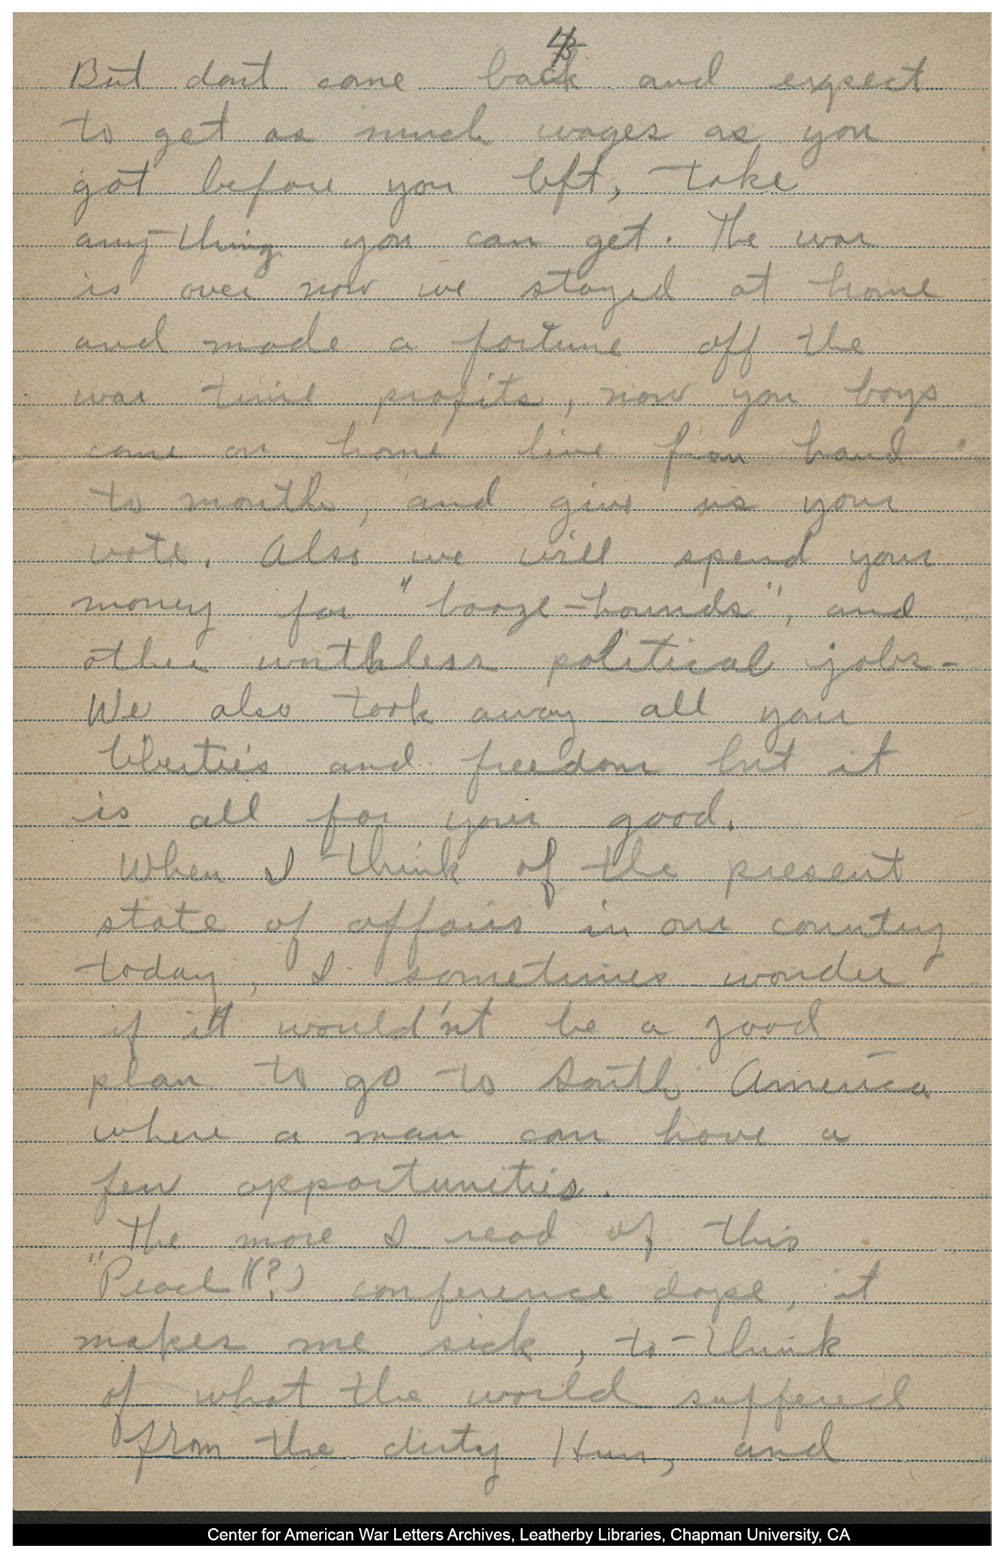 4/3
But dont come back and expect
to get as much wages as you
got before you left, take
any-thing you can get. The war
is over now we stayed at home
and made a fortune off the
war time profits, now you boys
come on home live from hand
to mouth, and give us your
vote. Also we will spend your
money for "booze-hounds", and
other worthless political jobs-
We also took away all your
liberties and freedom but it
is all for your good.
When I think of the present
state of affairs in our country
today, I sometimes wonder
if it would'nt be a good
plan to go to South America
where a man can have a
few opportunities.
The more I read of this
"Peace"(?) conference dope, it
makes me sick, to-think
of what the world suffered
from the dirty Hun, and
Center for American War Letters Archives, Leatherby Libraries, Chapman University, CA